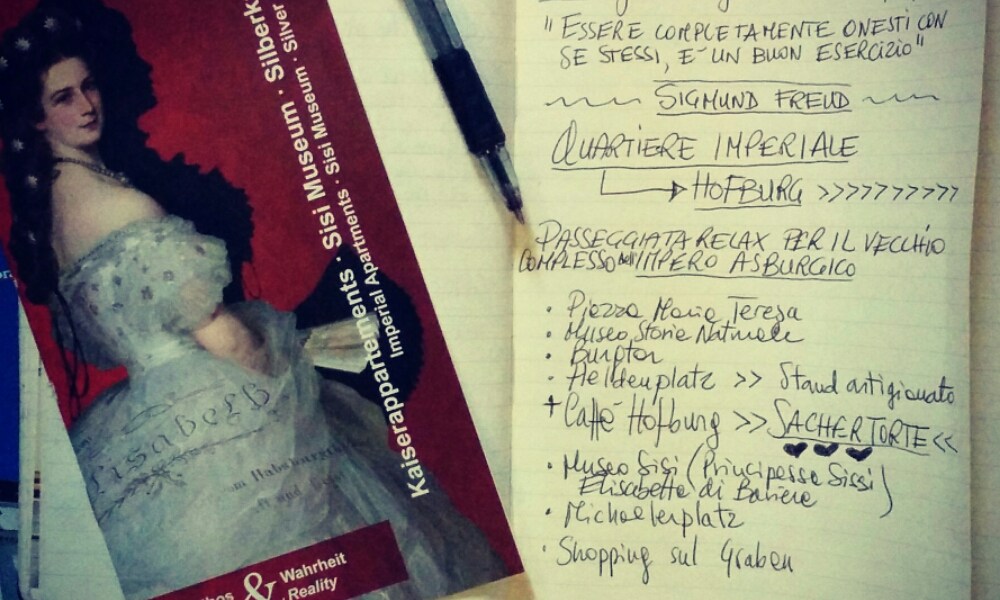 Kaiserappartements · Sisi Museum · Silberk
Imperial Apartments · Sisi Museum · Silver
Elisabeth
& Wahrheit
Reality
"ESSERE COMPLETAMENTE ONESTI CON
SE STESSI, E' UN BUON ESERCIZIO"
SIGMUND FREUD
QUARTIERE IMPERIALE
HOFBURG >>>>>>>>>>
PASSEGGIATA RELAX PER IL VECCHIO
COMPLESSO dell'IMPERO ASBURGICO
· Piazza Maria Teresa
· Museo Storia Naturale
· Burgtor
· Heldenplatz >> Stand artigianato
+ Caffè Hofburg >> SACHERTORTE <<
· Museo Sisi (Principessa Sissi)
Elisabetta di Baviera
· Michaelerplatz
· Shopping sul Graben